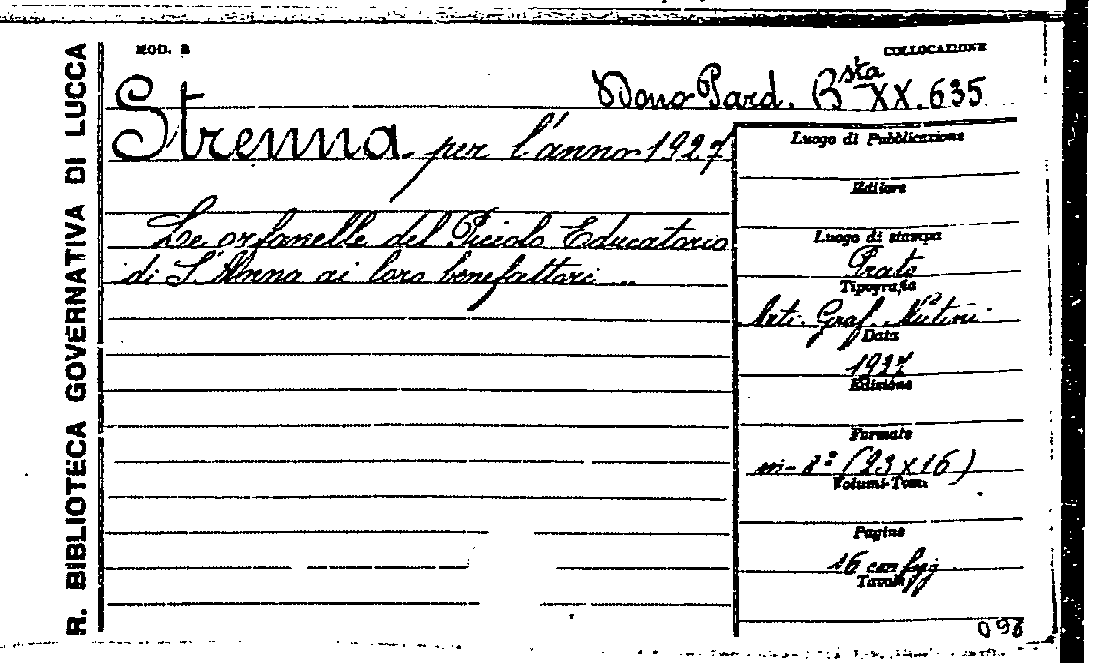 R. BIBLIOTECA GOVERNATIVA DI LUCCA
MOD. B
COLLOCAZIONE
Dono Pard. Bsta XX.635
Strenna per l'anno 1927
Le orfanelle del Piccolo Educatorio
di S. Anna ai loro benefattori ...
Luogo di Pubblicazione
Editore
Luogo di stampa
Prato
Tipografia
Arti. Graf. Nutini
Data
1927
Edizione
Formato
in-8º (23 x 16)
Volumi-Tomi
Pagine
16 con fig
Tavole